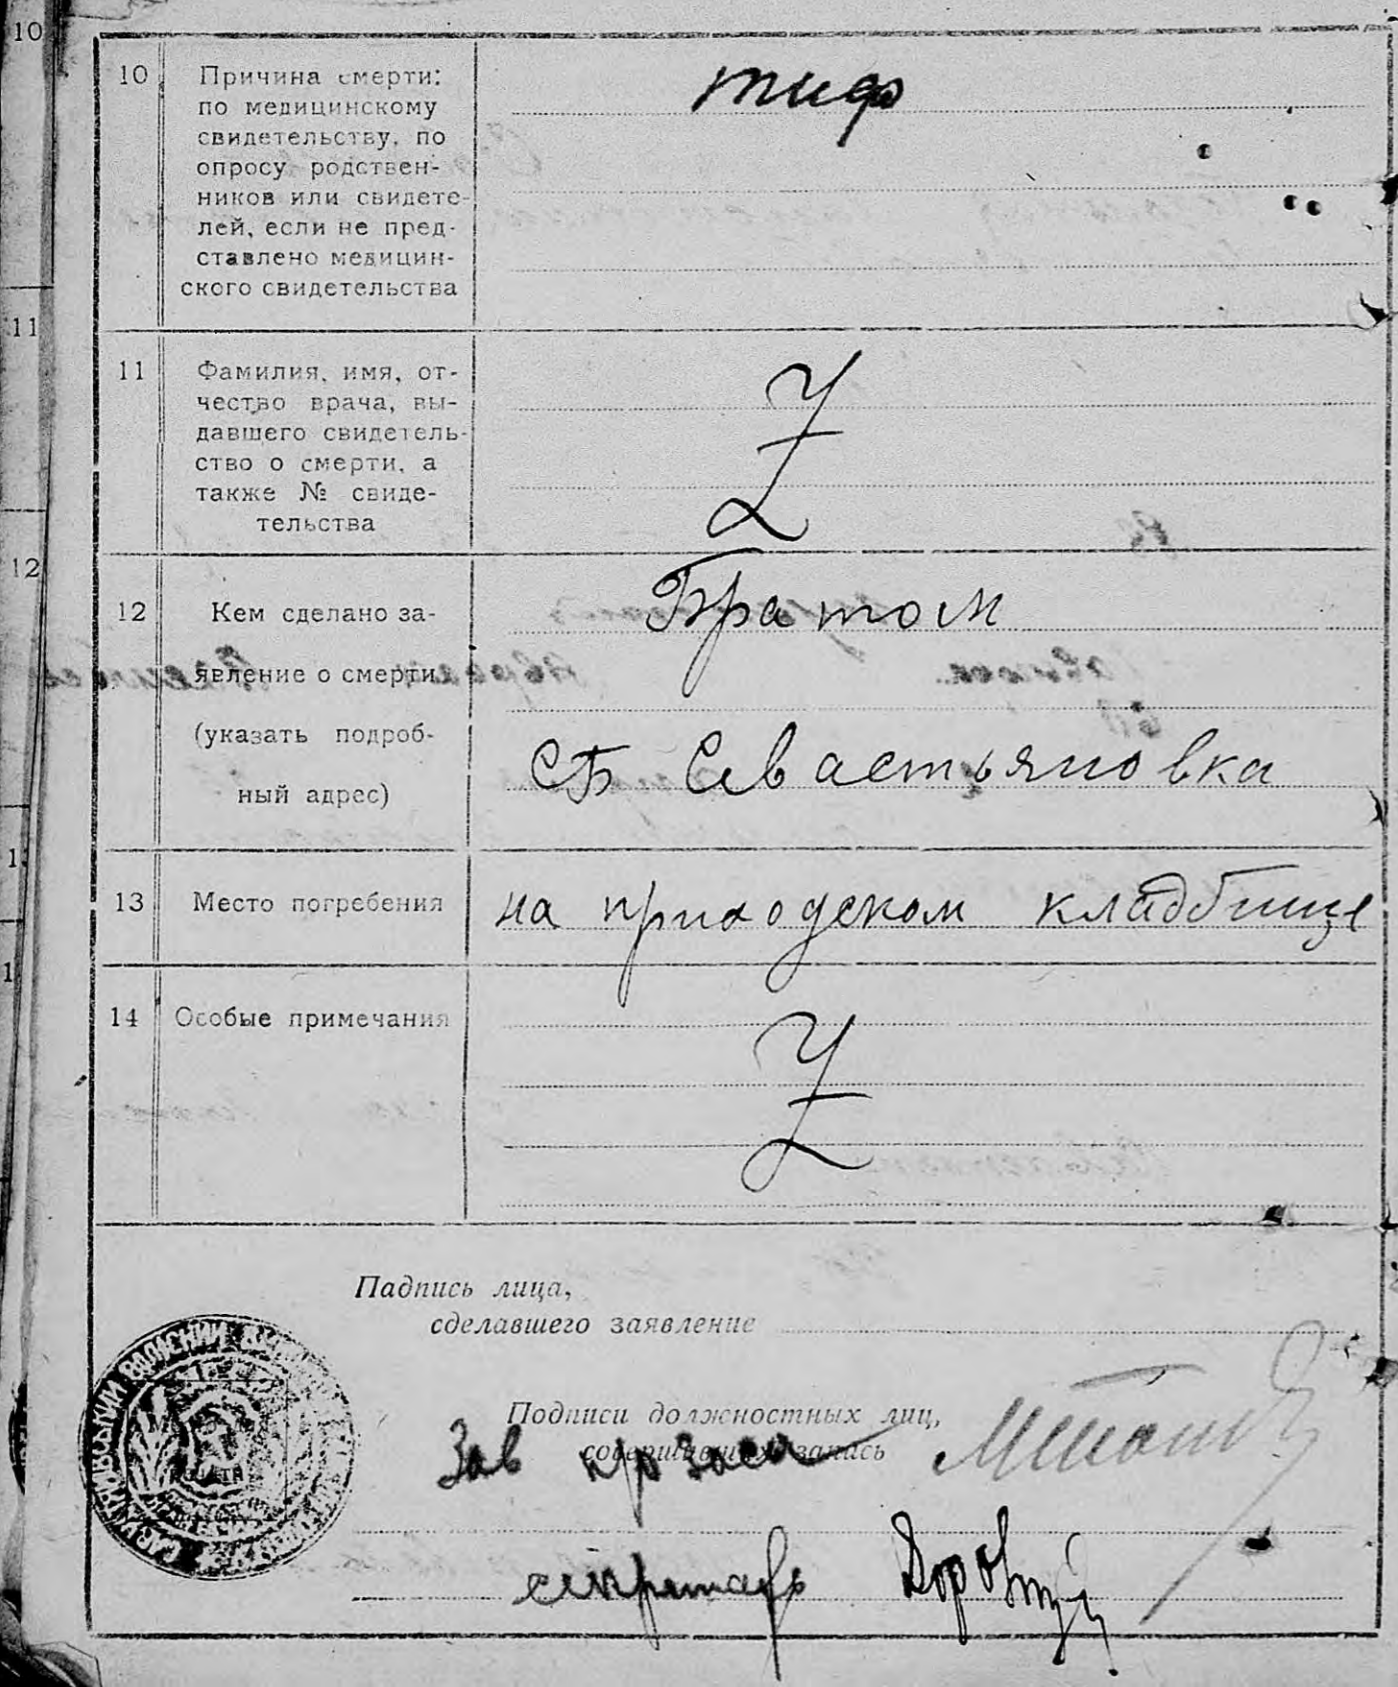 10
10
Причина смерти:
по медицинскому
свидетельству, по
опросу родствен-
ников или свидете-
лей, если не пред-
ставлено медицин-
ского свидетельства
тиф
11
11
Фамилия, имя, от-
чество врача, вы-
давшего свидетель-
ство о смерти, а
также № свиде-
тельства
Z
12
12
Кем сделано за-
явление о смерти
(указать подроб-
ный адрес)
Братом
СБ Севастьяновка
13
Место погребения
на приходском кладбище
14
Особые примечания
Z
Падпись лица,
сделавшего заявление
Подписи должностных лиц,
совершивших запись
Зав
секретарь